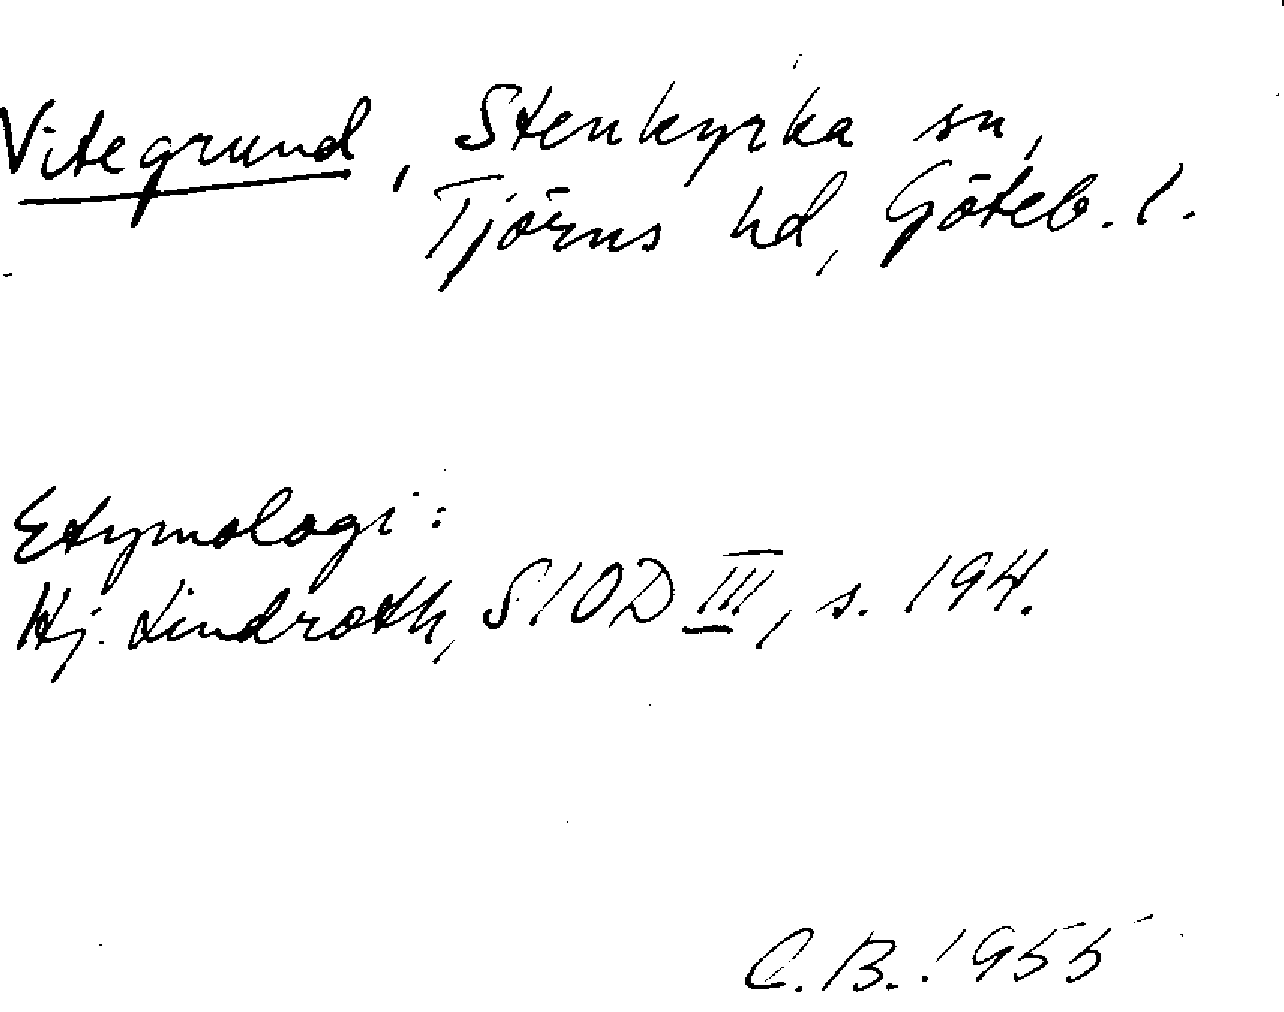 Vitegrund, Stenkyrka sn,
Tjörns hd, Göteb. l.
Etymologi:
Hj. Lindroth, SIOD III, s. 194.
C.B. 1955